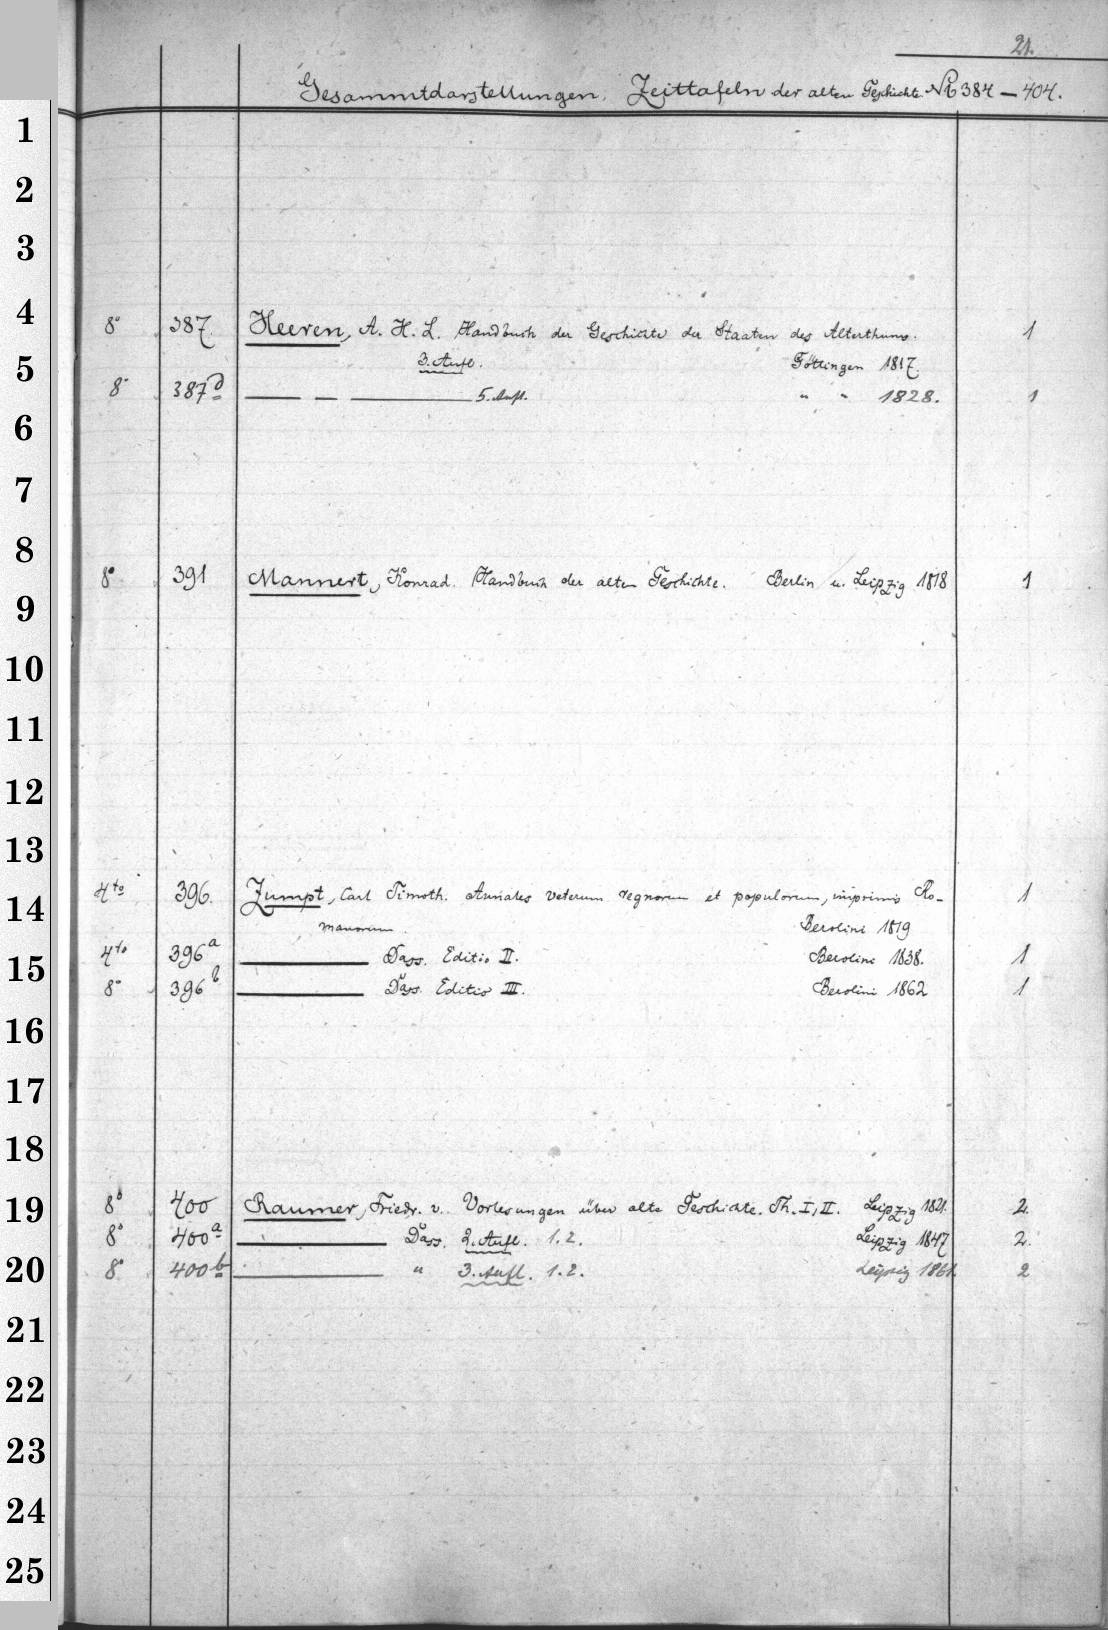 21.
Gesammtdarstellungen. Zeittafeln der alten Geschichte. No 384 — 404.
1
2
3
4
8° 387. Heeren, A. H. L. Handbuch der Geschichte der Staaten des Alterthums. 1
3. Aufl. Göttingen 1817.
5
8° 387d — — — 5. Aufl. " " 1828. 1
6
7
8
8° 391 Mannert, Konrad. Handbuch der alten Geschichte. Berlin u. Leipzig 1818 1
9
10
11
12
13
4to 396. Zumpt, Carl Timoth. Annales veterum regnorum et populorum, imprimis Ro- 1
14
manorum. Berolini 1819
4to 396a — Dass. Editio II. Berolini 1838. 1
15
8° 396b — Dass. Editio III. Berolini 1862 1
16
17
18
8° 400 Raumer, Friedr. v. Vorlesungen über alte Geschichte. Th. I, II. Leipzig 1821. 2.
19
8° 400a — Dass. 2. Aufl. 1. 2. Leipzig 1847 2.
20
8° 400b — " 3. Aufl. 1. 2. Leipzig 1861. 2
21
22
23
24
25